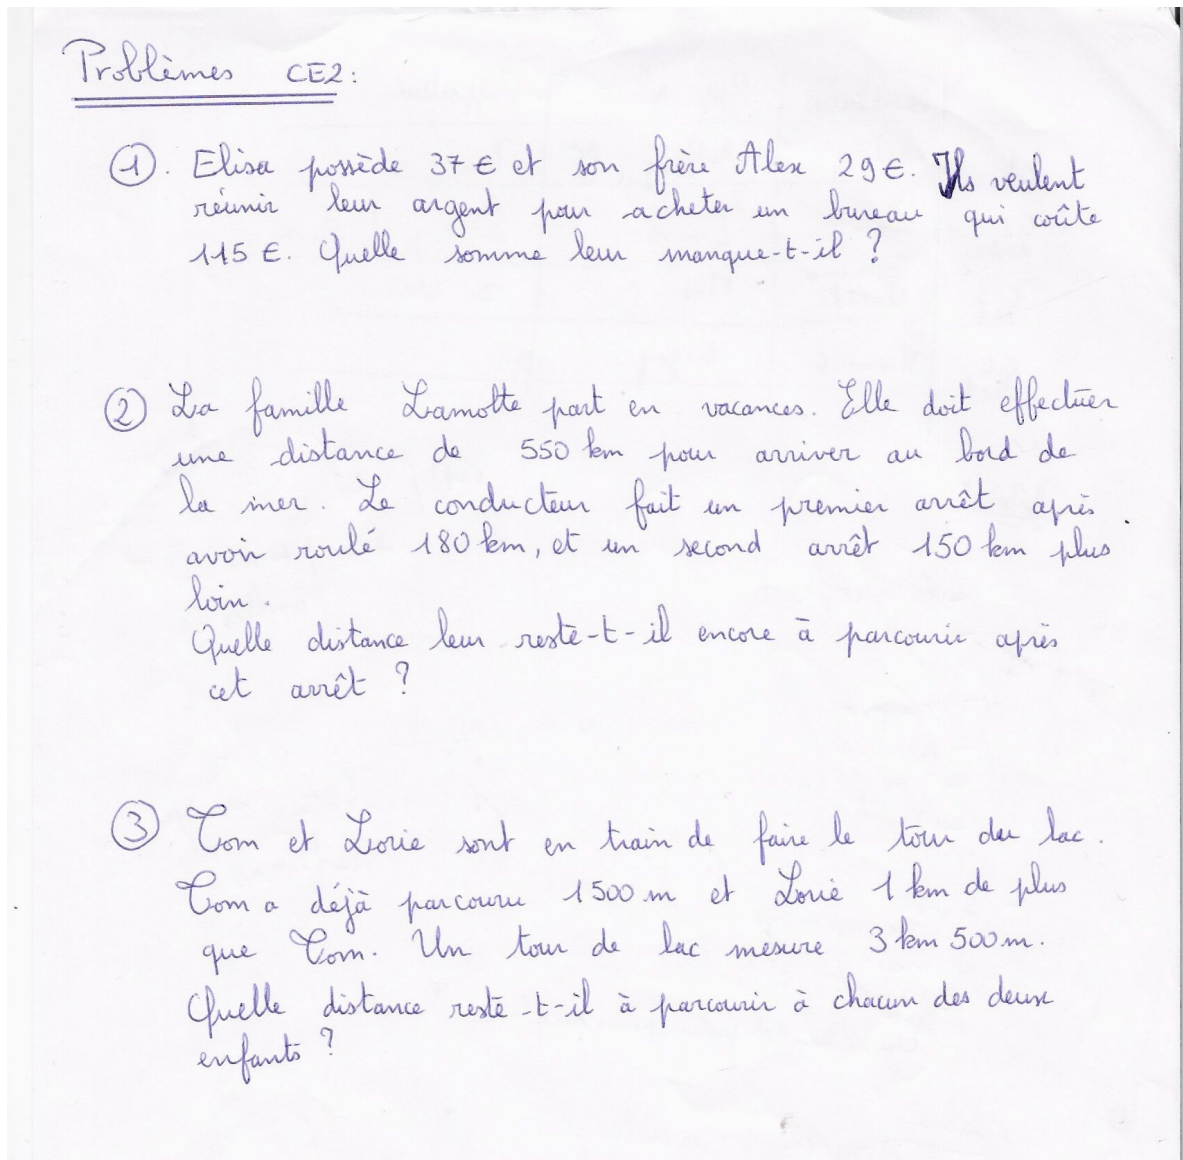 Problèmes CE2:
1. Elisa possède 37 € et son frère Alex 29 €. Ils veulent
réunir leur argent pour acheter un bureau qui coûte
115 €. Quelle somme leur manque-t-il ?
2 La famille Lamotte part en vacances. Elle doit effectuer
une distance de 550 km pour arriver au bord de
la mer. Le conducteur fait un premier arrêt après
avoir roulé 180 km, et un second arrêt 150 km plus
loin.
Quelle distance leur reste-t-il encore à parcourir après
cet arrêt ?
3 Tom et Lorie sont en train de faire le tour du lac.
Tom a déjà parcouru 1500 m et Lorie 1 km de plus
que Tom. Un tour de lac mesure 3 km 500 m.
Quelle distance reste-t-il à parcourir à chacun des deux
enfants ?